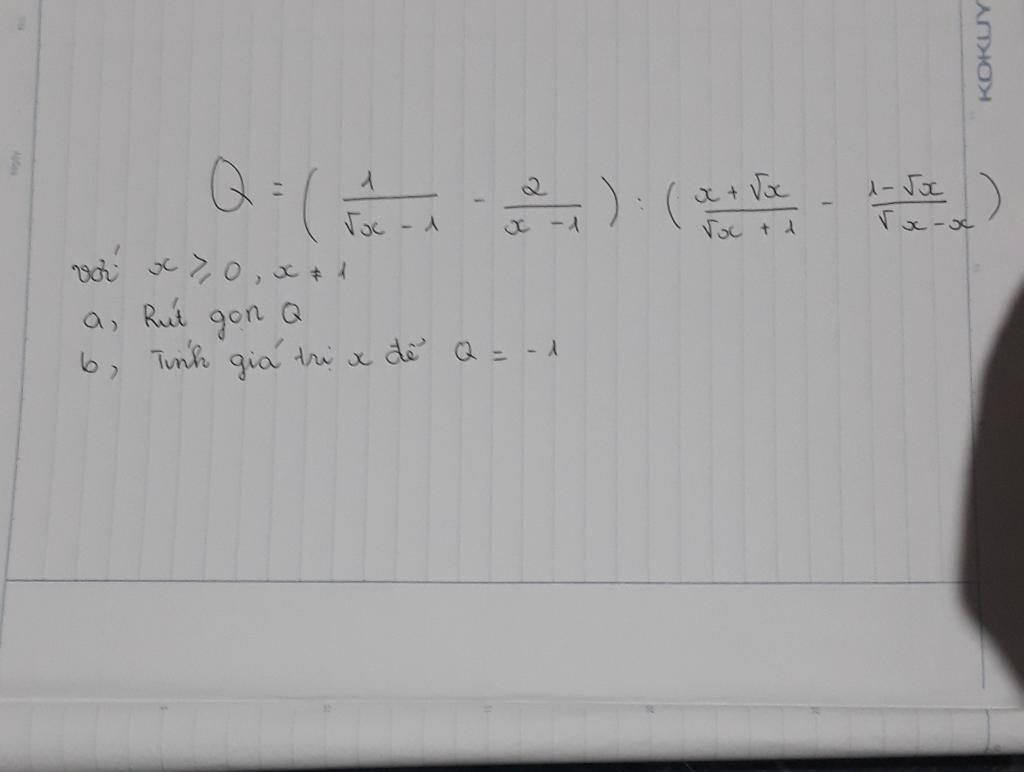 KOKUY
Q = ( \frac{1}{\sqrt{x} - 1} - \frac{2}{x - 1} ) : ( \frac{x + \sqrt{x}}{\sqrt{x} + 1} - \frac{1 - \sqrt{x}}{\sqrt{x} - x} )
với x ≥ 0, x ≠ 1
a, Rút gọn Q
b, Tính giá trị x để Q = -1